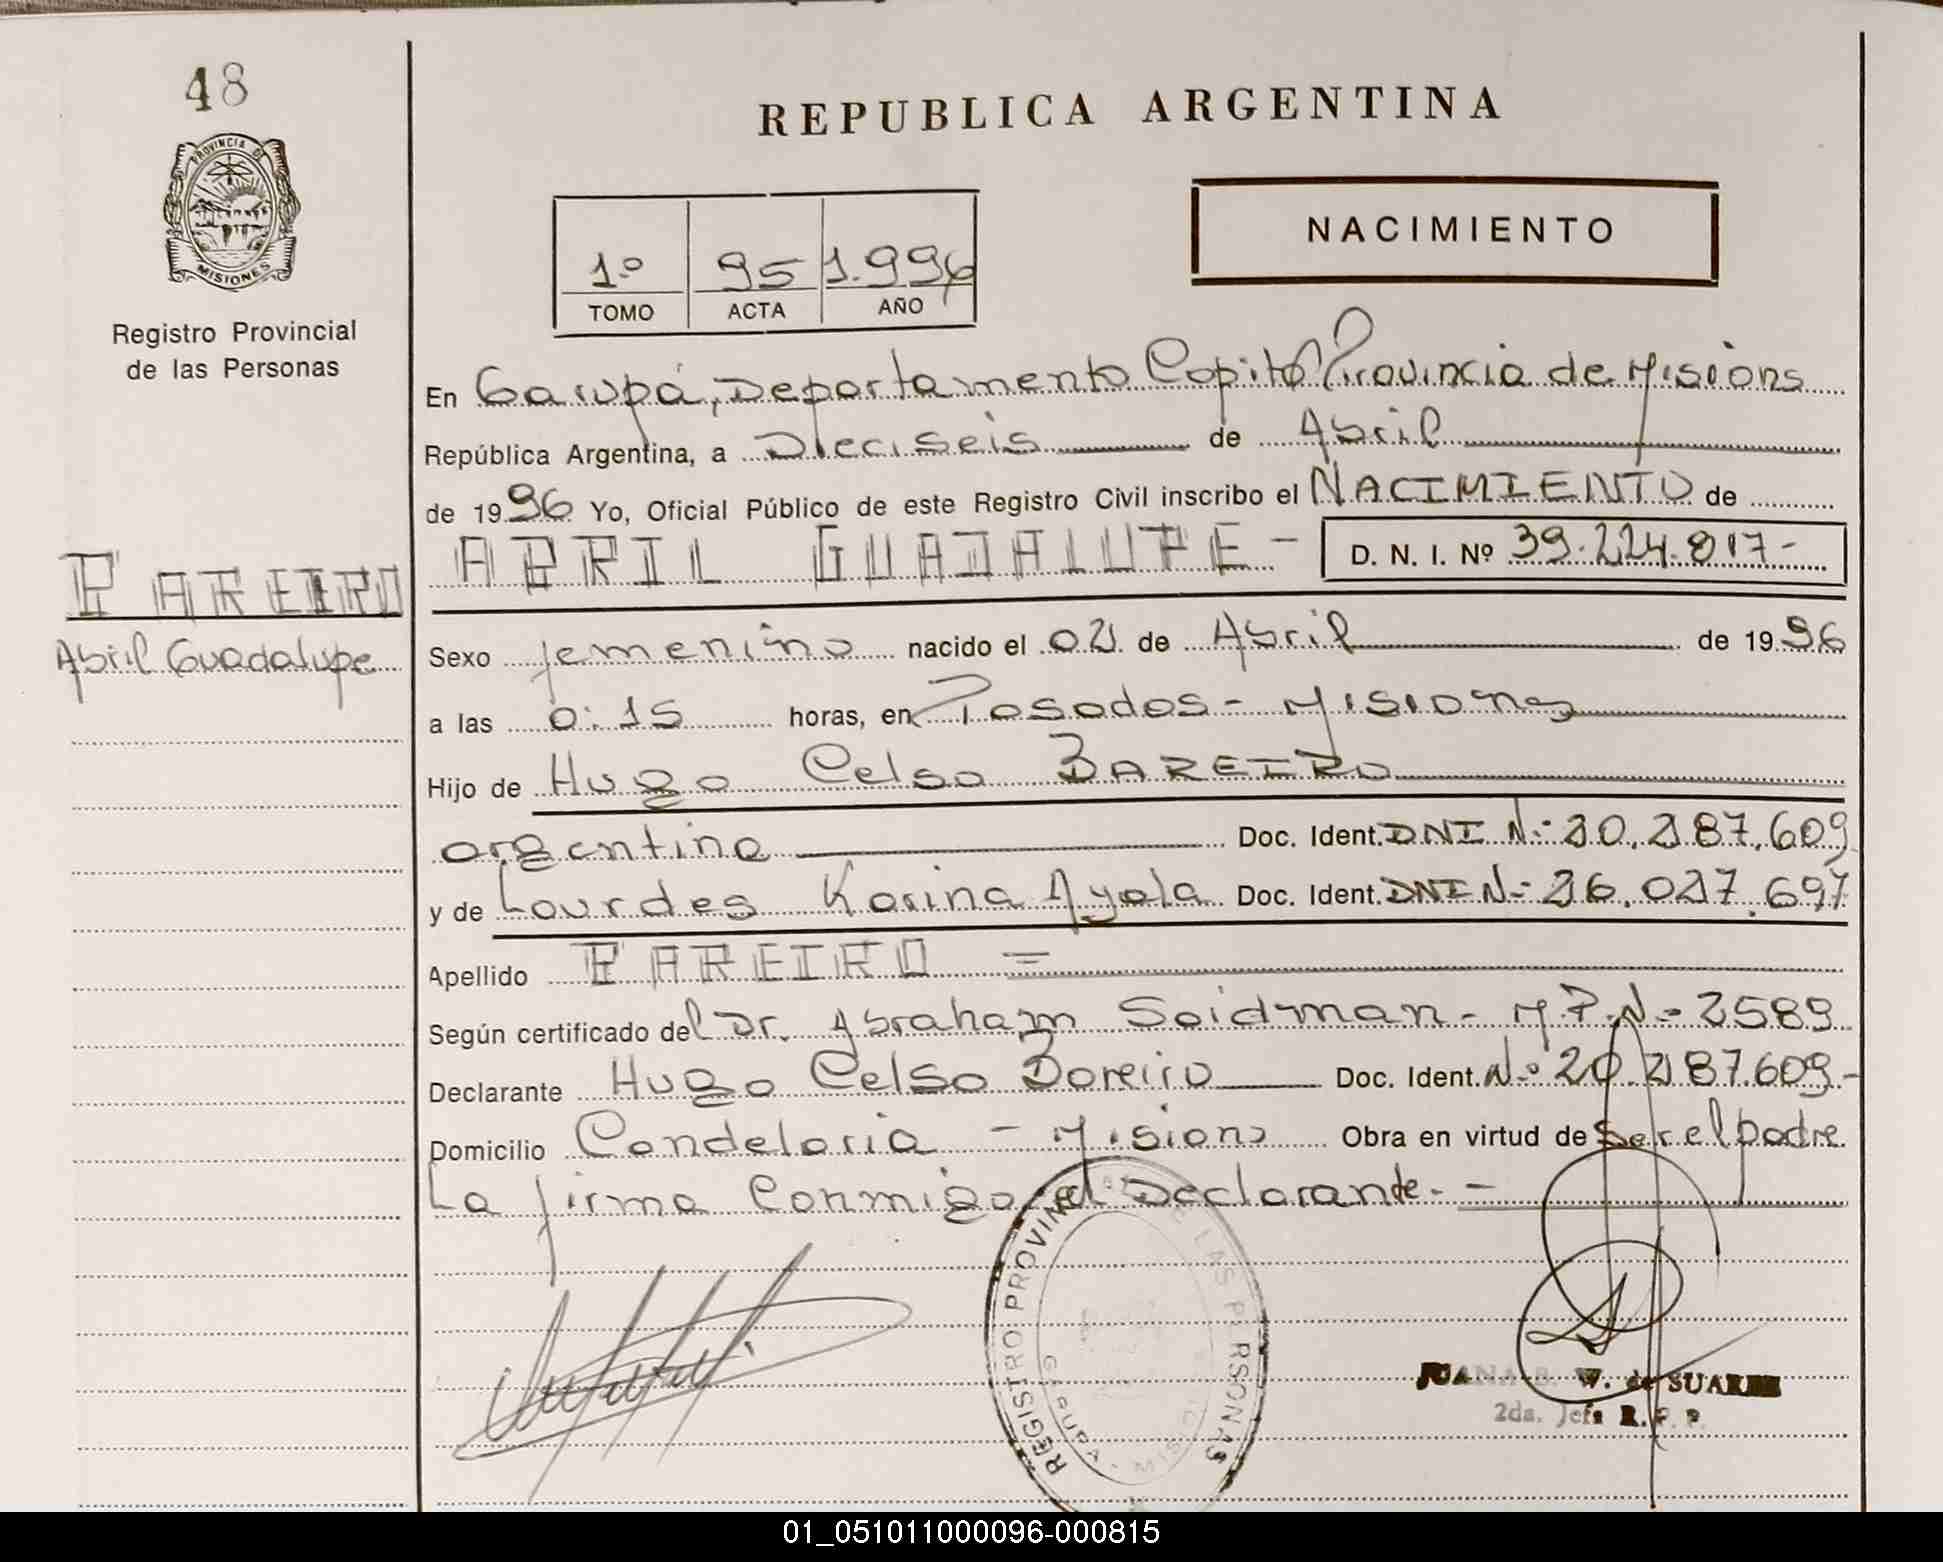 48
PROVINCIA DE
MISIONES
Registro Provincial
de las Personas
BAREIRO
Abril Guadalupe
REPUBLICA ARGENTINA
NACIMIENTO
1º 95 1.996
TOMO ACTA AÑO
En Garupá, Departamento Capital Provincia de Misiones
República Argentina, a Dieciseis de Abril
de 1996 Yo, Oficial Público de este Registro Civil inscribo el NACIMIENTO de
ABRIL GUADALUPE - D. N. I. Nº 39.224.817-
Sexo femenino nacido el 02 de Abril de 1996
a las 0:15 horas, en Posadas - Misiones
Hijo de Hugo Celso BAREIRO
argentino Doc. Ident. DNI N.- 20.287.609
y de Lourdes Karina Ayala Doc. Ident. DNI N.- 26.027.697
Apellido BAREIRO =
Según certificado del Dr. Abraham Soidman - M.P.N.- 2589
Declarante Hugo Celso Bareiro Doc. Ident. N.º 20.287.609.-
Domicilio Candelaria - Misiones Obra en virtud de Ser el padre
La firma Conmigo el Declarante. -
REGISTRO PROVINCIAL DE LAS PERSONAS
GARUPA - MISIONES
JUANA B. W. de SUAREZ
2da. Jefa R. P. P.
01_051011000096-000815